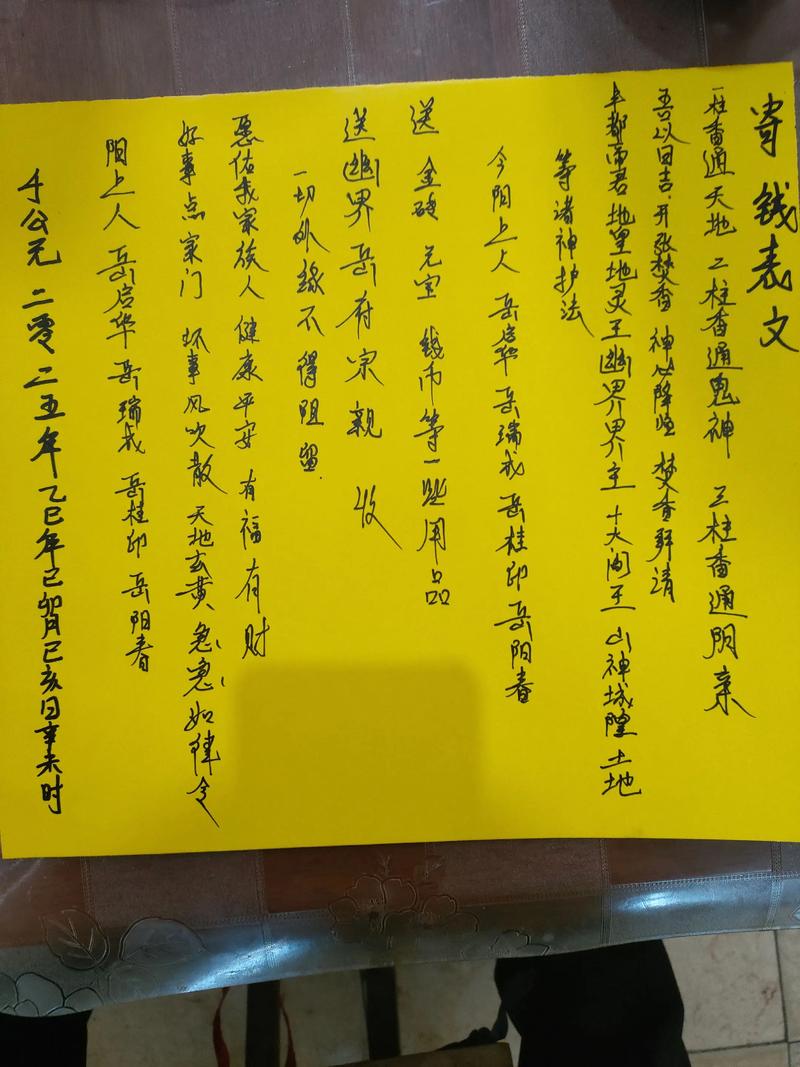 寄钱表文
一柱香通天地 二柱香通鬼神 三柱香通阴亲
吾以日吉 开张焚香 神必降临 焚香拜请
丰都帝君 地皇地灵王幽界界主 十大阎王 山神城隍 土地
等诸神护法
今阳上人 岳启华 岳瑞成 岳桂卯 岳阳春
送 金砖 元宝 钱币等一些用品
送幽界岳府宗亲 收
一切外缘不得阻留.
愿佑我家族人 健康平安 有福有财
好事点家门 坏事风吹散 天地玄黄 急急如律令
阳上人 岳启华 岳瑞成 岳桂卯 岳阳春
于公元 二零二五年乙巳年己卯月己亥日辛未时